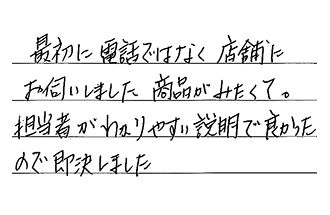 最初に電話ではなく店舗に
お伺いしました 商品がみたくて。
担当者がわかりやすい説明で良かった
ので即決しました